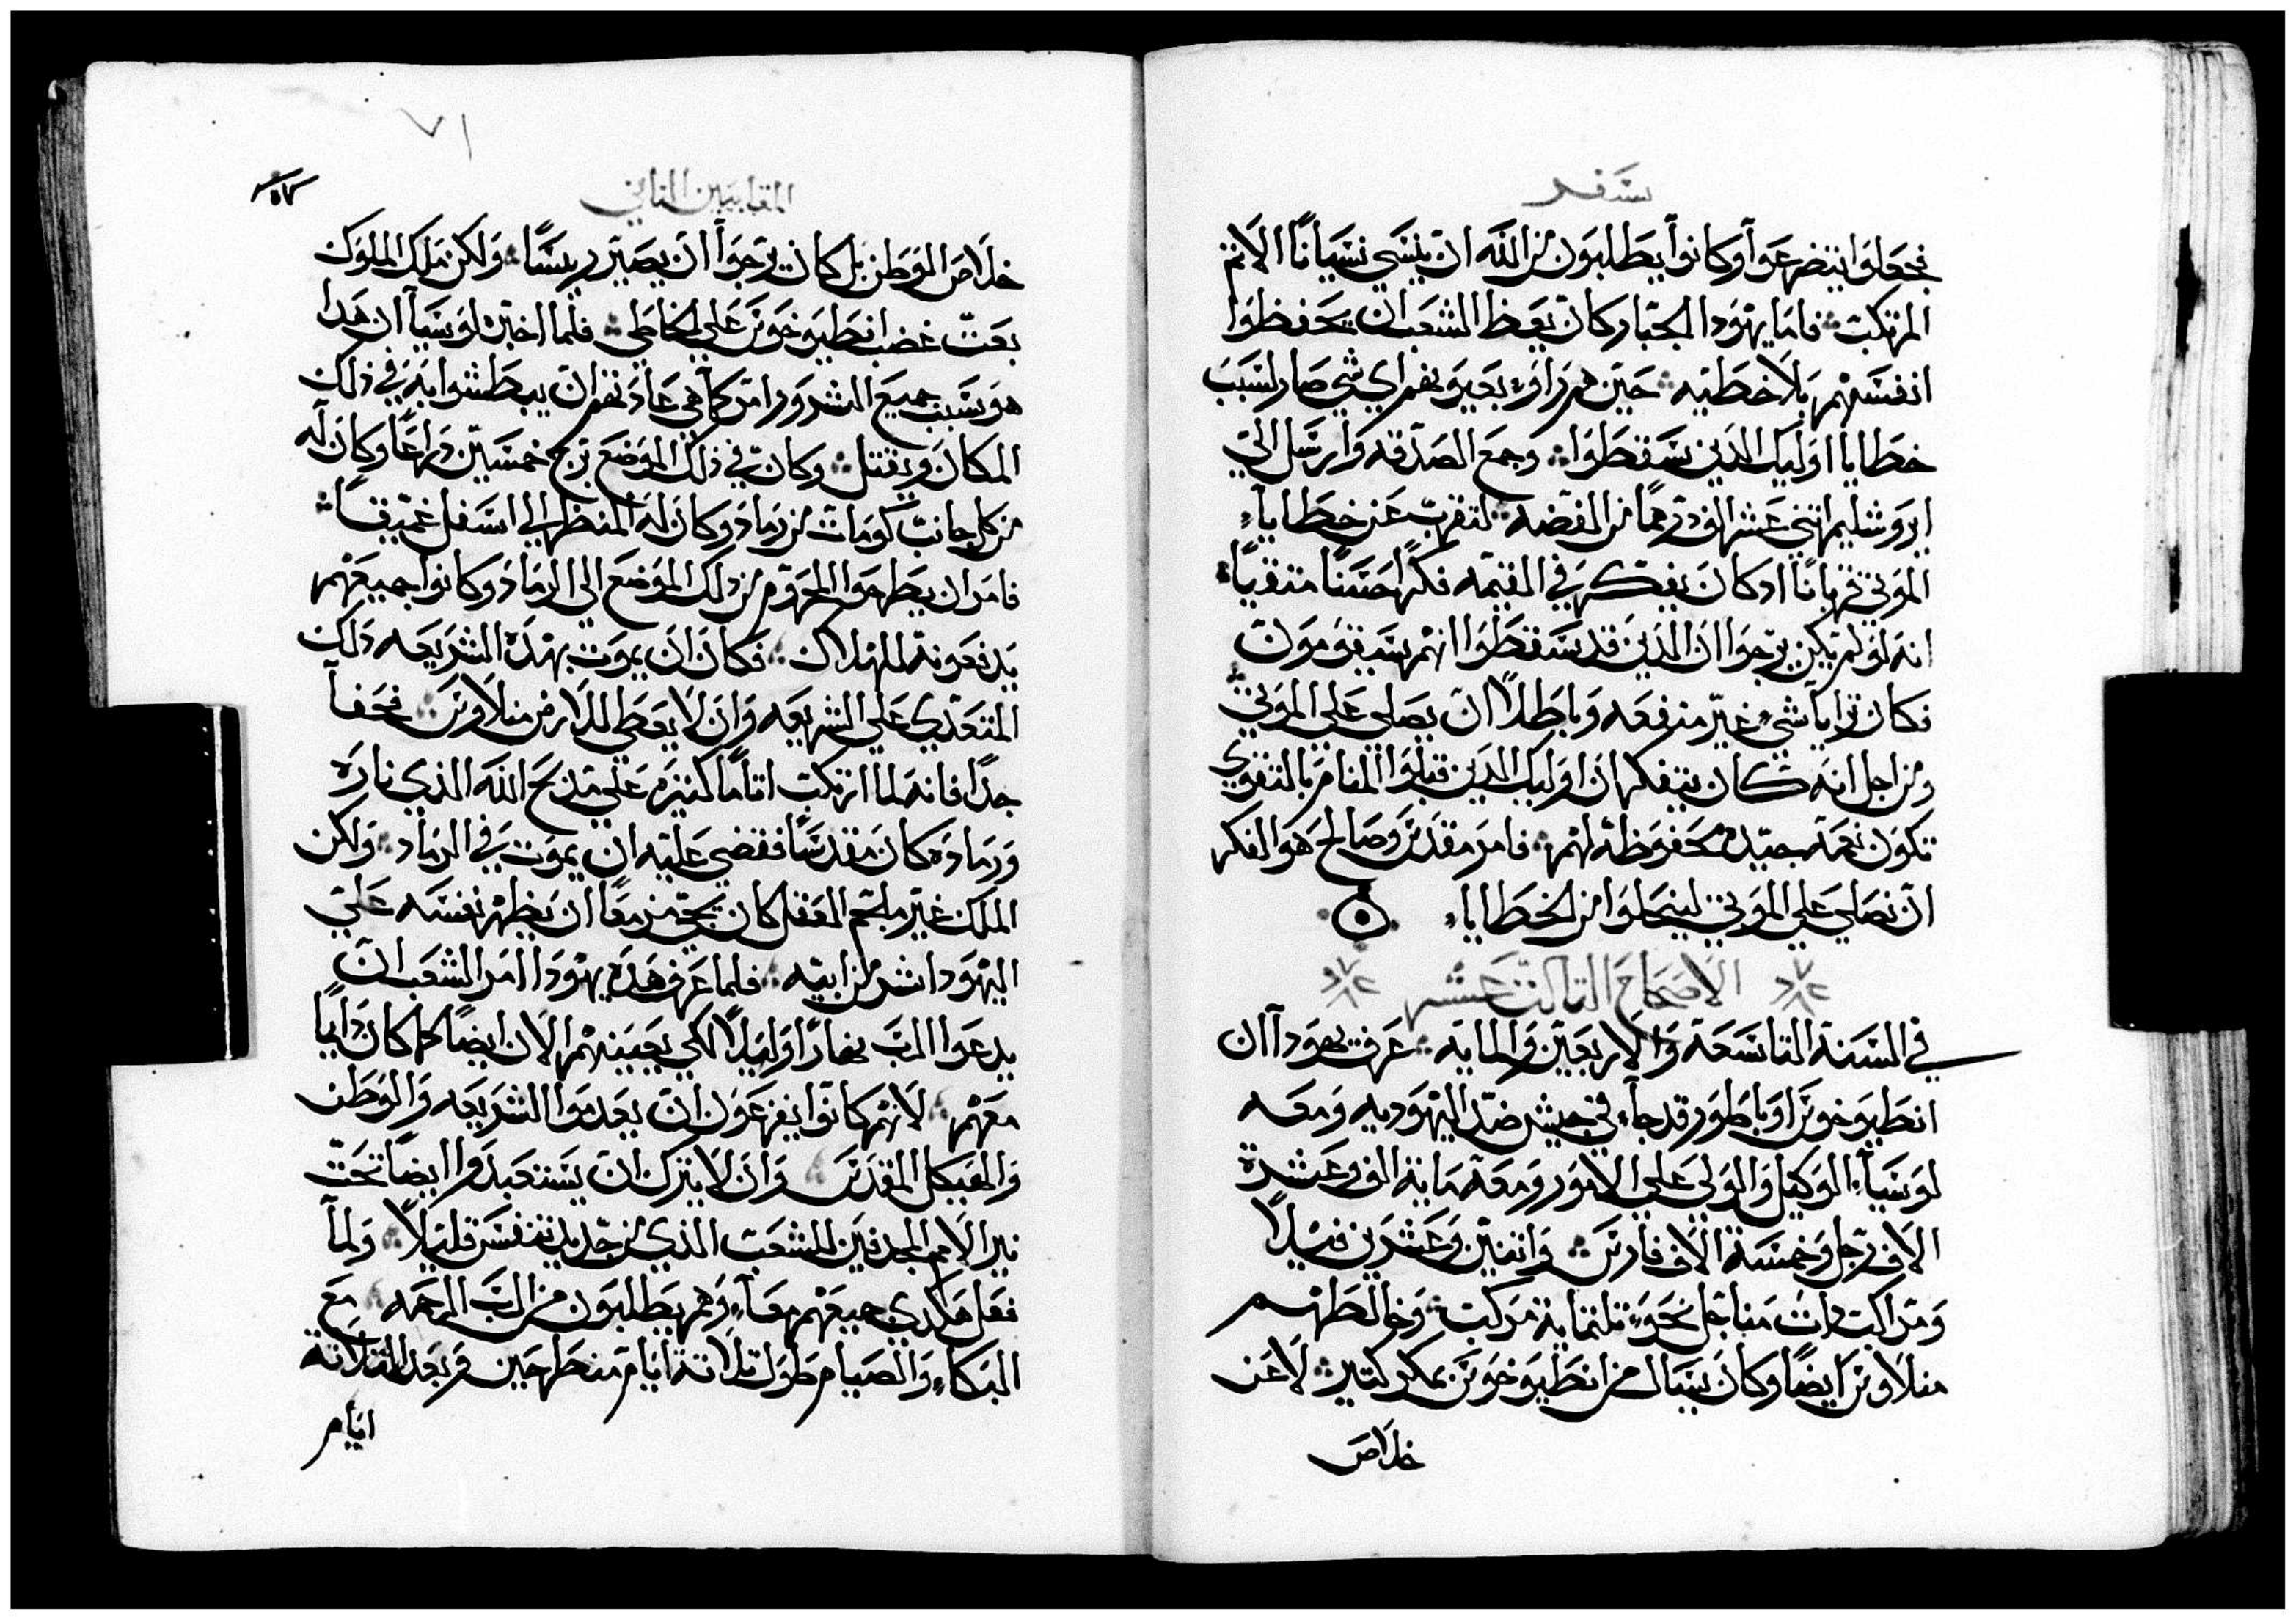 سفر
فجعلوا يتضرعوا وكانوا يطلبون من الله ان ينسي نسياناً الاثم
المرتكب فاما يهودا الجبار وكان يعظ الشعب ان يحفظوا
انفسهم بلا خطيه حين هم راوا بعيونهم اي شي صار لسبب
خطايا اوليك الدين سقطوا وجمع الصدقه وارسل الي
ايروشليم اتني عشر الف درهماً من الفضه لتقرب عن خطايا
الموتي قرباناً ادكان يفتكر في القيمه فكراً حسناً متقياً
انه لو لم يكن يرجوا ان الدين قد سقطوا انهم سيقومون
فكان ترايا شي غير منفعه وباطلاً ان يصلي علي الموتي
ومن اجل انه كان يتفكر ان اوليك الدين قبلوا المنام بالتقوي
تكون نعمة جيده محفوظة لهم فامر مقدس وصالح هو الفكر
ان نصلي علي الموتي لينحلوا من الخطايا
الاصحاح التالت عشر
في السنة التاسعة والاربعين والمايه عرف يهودا ان
انطيوخوس اوباطور قد جاء في جيش ضد اليهوديه ومعه
لوسيا الوكيل والولي علي الامور ومعه ماية الف وعشرة
الاف رجل وخمسة الاف فارس واتنين وعشرين فيلاً
ومراكب دات مناجل نحو تلتماية مركب وخالطهم
منلاوس ايضاً وكان يسال من انطيوخوس بمكر كتير لا عن
خلاص
٧١
المقابيين التاني
خلاص الوطن بل كان يرجوا ان يصير ريساً ولكن ملك الملوك
بعت غضب انطيوخوس علي الخاطي فلما اخبره لوسيا ان هدا
هو سبب جميع الشرور امر كما هي عادتهم ان يبطشوا به في ذلك
المكان ويقتل وكان في ذلك الموضع برج خمسين دراعاً وكان له
من كل جانب كومات من رماد وكان له المنظر الي اسفل عميقاً
فامر ان يطرحوا المحروم من دلك الموضع الي الرماد وكانوا جميعهم
يدفعونه للهلاك فكان ان يموت بهده الشريعه دلك
المتعدي علي الشريعه وان لا يعطي للارض منلاوس فحقاً
جداً فانه لما ارتكب اتاماً كتيره علي مدبح الله الذي ناره
ورماده كان مقدساً فقضي عليه ان يموت في الرماد ولكن
الملك غير ملجم العقل كان يجي مزمعاً ان يظهر نفسه علي
اليهود اشر من ابيه فلما عرف هده يهودا امر الشعب ان
يدعوا الرب نهاراً وليلاً لكي يعينهم الان ايضاً كما كان دايماً
معهم لانهم كانوا يفزعون ان يعدموا الشريعه والوطن
والهيكل المقدس وان لا يترك ان يستعبدوا ايضاً تحت
نير الامم المجدفين للشعب الذي من جديد تنفس قليلاً ولما
فعل هكدي جميعهم معاً وهم يطلبون من الرب الرحمه مع
البكاء والصيام طول تلاتة ايام منطرحين وبعد التلاتة
ايام